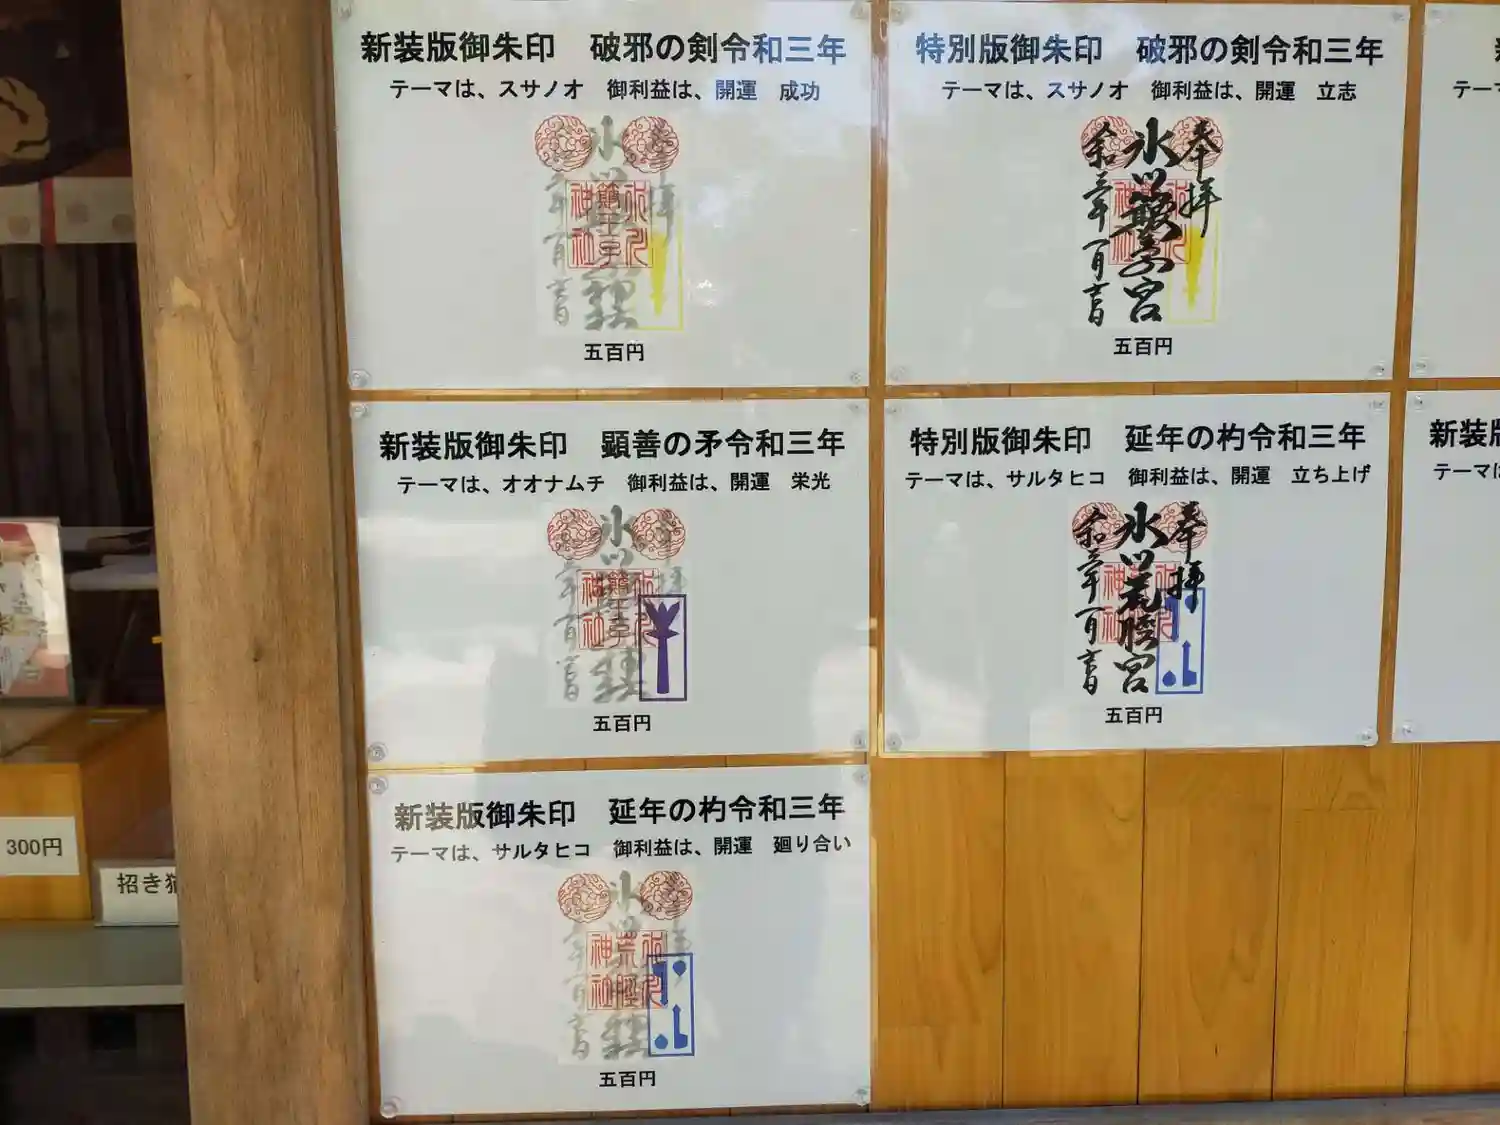 新装版御朱印　破邪の剣令和三年
テーマは、スサノオ　御利益は、開運　成功
奉拝
氷川
五百円
特別版御朱印　破邪の剣令和三年
テーマは、スサノオ　御利益は、開運　立志
奉拝
氷川簸王子宮
令和三年一月吉日
五百円
新装版御朱印　顕善の矛令和三年
テーマは、オオナムチ　御利益は、開運　栄光
奉拝
氷川
五百円
特別版御朱印　延年の杓令和三年
テーマは、サルタヒコ　御利益は、開運　立ち上げ
奉拝
氷川荒脛宮
令和三年一月吉日
五百円
新装版御朱印　延年の杓令和三年
テーマは、サルタヒコ　御利益は、開運　廻り合い
氷川
五百円
テー
新装版
テーマは
300円
招き猫